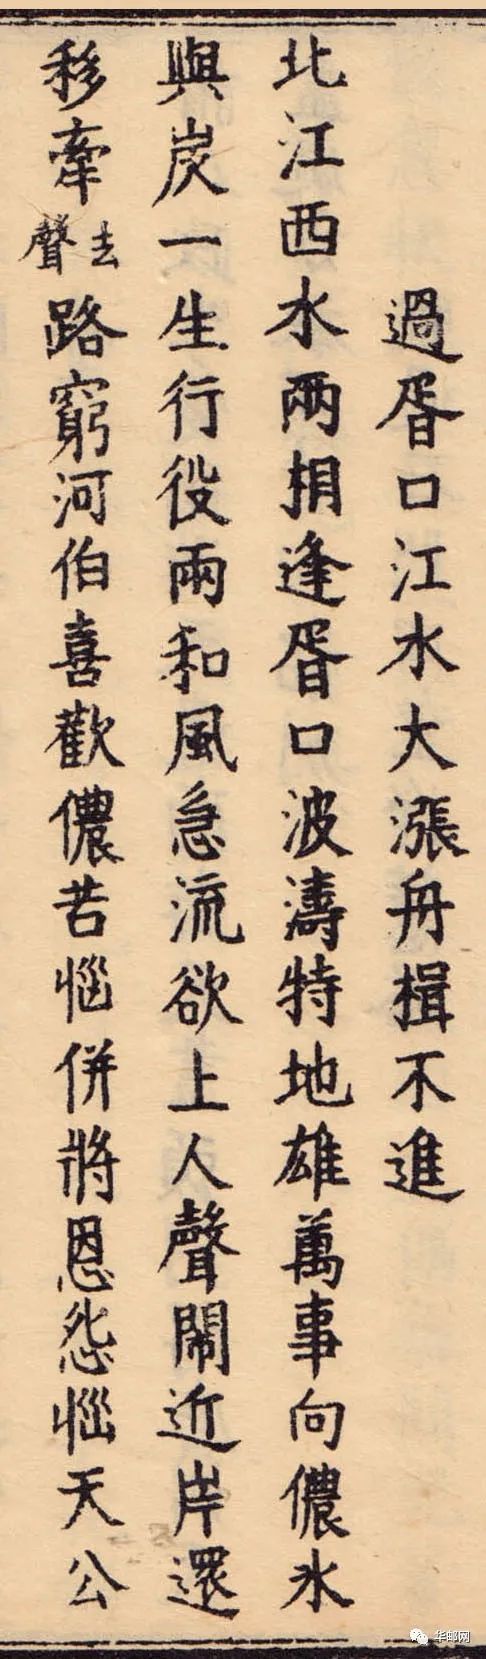 過胥口江水大漲舟楫不進
北江西水兩相逢胥口波濤特地雄萬事向儂冰
與炭一生行役雨和風急流欲上人聲鬧近岸還
移牽去聲路窮河伯喜歡儂苦惱併將恩怨惱天公
华邮网